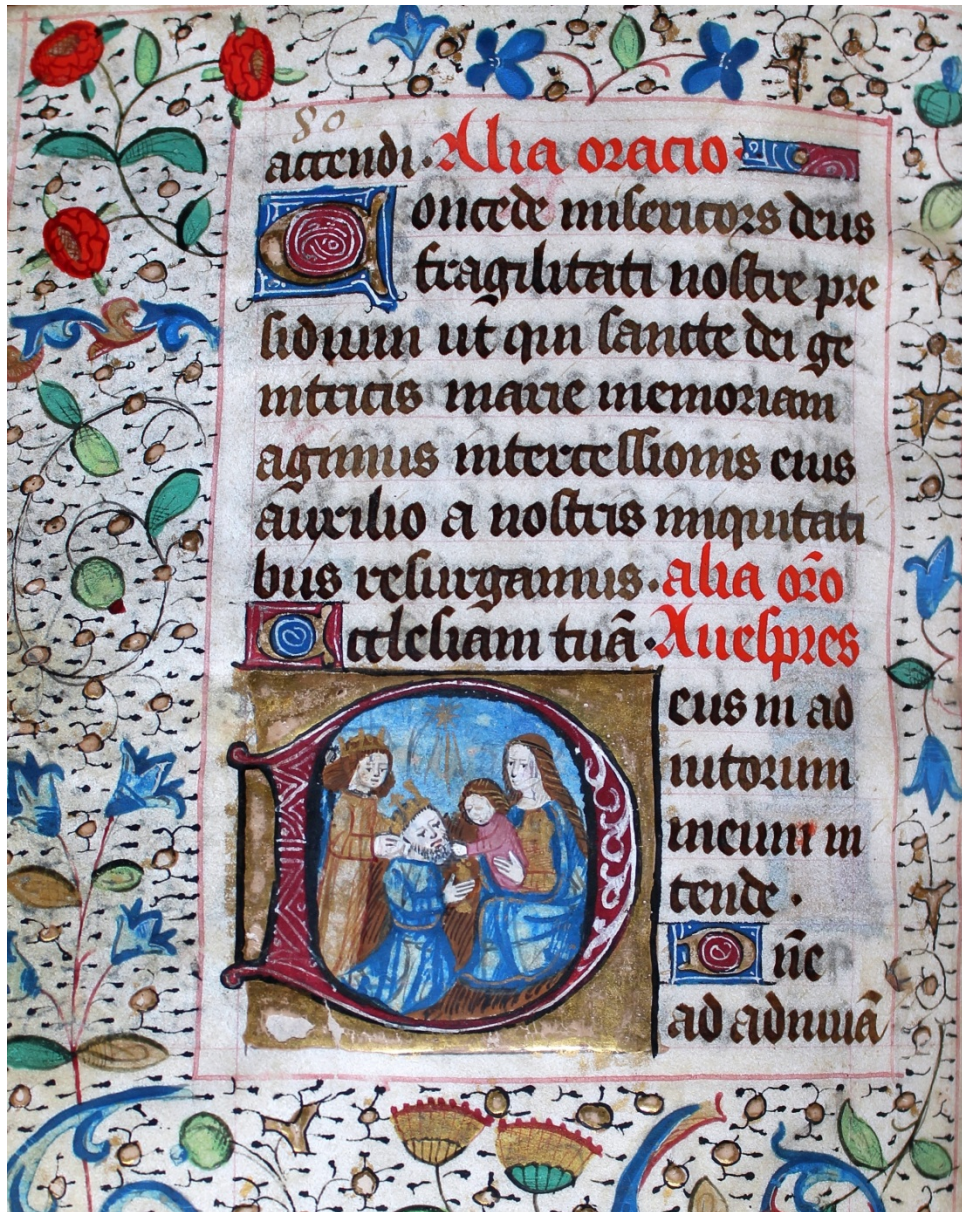 80
accendi · Alia oracio ·
Concede misericors deus
fragilitati nostre pre
sidium ut qui sancte dei ge
nitricis marie memoriam
agimus intercessionis eius
auxilio a nostris iniquitati
bus resurgamus · alia oro̅
Ecclesiam tua̅ · A uespres
Deus in ad
iutorium
meum in
tende ·
Dn̅e
ad adiuua̅